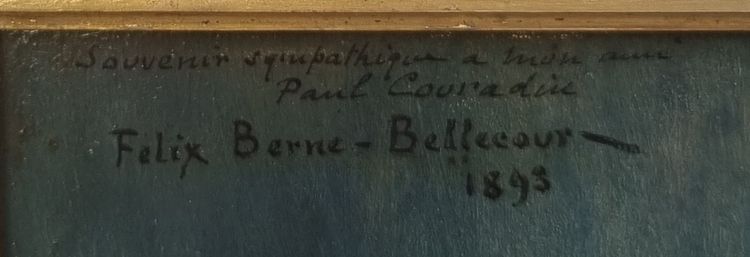 Souvenir sympathique a mon ami
Paul Couradin
Félix Berne-Bellecour
1893